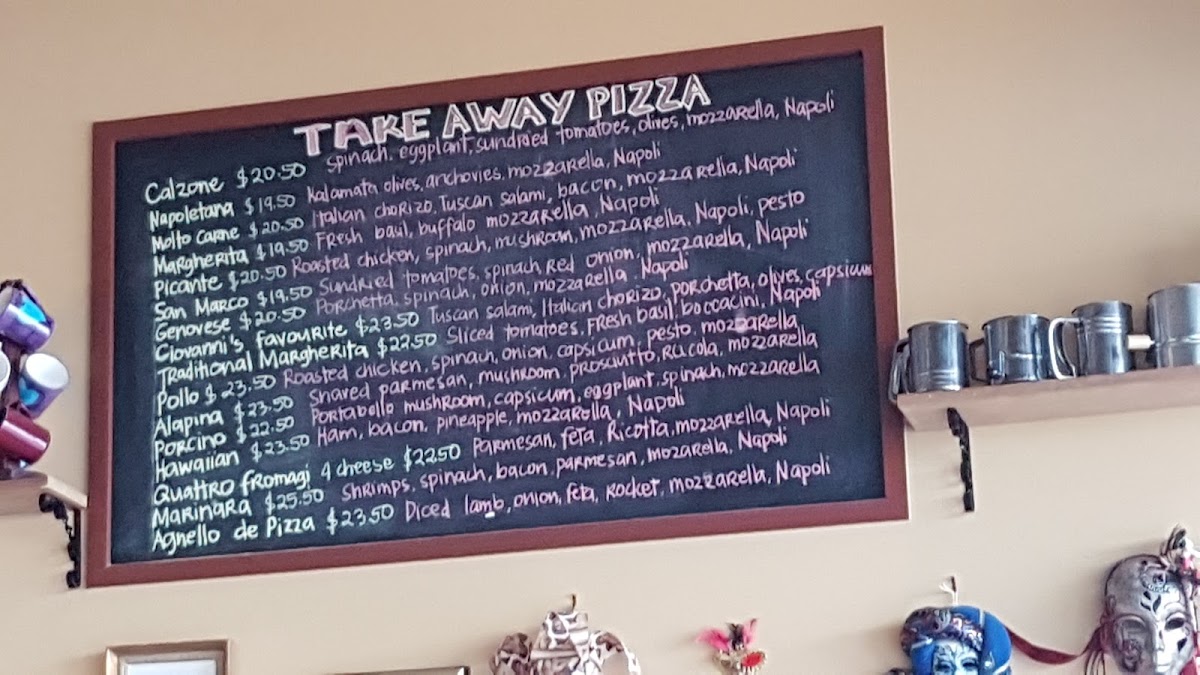 TAKE AWAY PIZZA
Calzone $20.50 spinach, eggplant, sundried tomatoes, olives, mozzarella, Napoli
Napoletana $19.50 Kalamata olives, anchovies, mozzarella, Napoli
Molto Carne $20.50 Italian chorizo, Tuscan salami, bacon, mozzarella, Napoli
Margherita $19.50 Fresh basil, buffalo mozzarella, Napoli
Picante $20.50 Roasted chicken, spinach, mushroom, mozzarella, Napoli, pesto
San Marco $19.50 Sundried tomatoes, spinach, Red onion, mozzarella, Napoli
Genovese $20.50 Porchetta, spinach, onion, mozzarella, Napoli
Giovanni's favourite $23.50 Tuscan salami, Italian chorizo, porchetta, olives, capsicum
Traditional Margherita $22.50 Sliced tomatoes, Fresh basil, boccacini, Napoli
Pollo $23.50 Roasted chicken, spinach, onion, capsicum, pesto, mozzarella
Alapina $23.50 Shaved parmesan, mushroom, prosciutto, Rucola, mozzarella
Porcino $22.50 Portabello mushroom, capsicum, eggplant, spinach, mozzarella
Hawaiian $23.50 Ham, bacon, pineapple, mozzarella, Napoli
Quattro fromagi 4 cheese $22.50 Parmesan, feta, Ricotta, mozzarella, Napoli
Marinara $25.50 Shrimps, spinach, bacon, parmesan, mozarella, Napoli
Agnello de Pizza $23.50 Diced lamb, onion, feta, rocket, mozzarella, Napoli